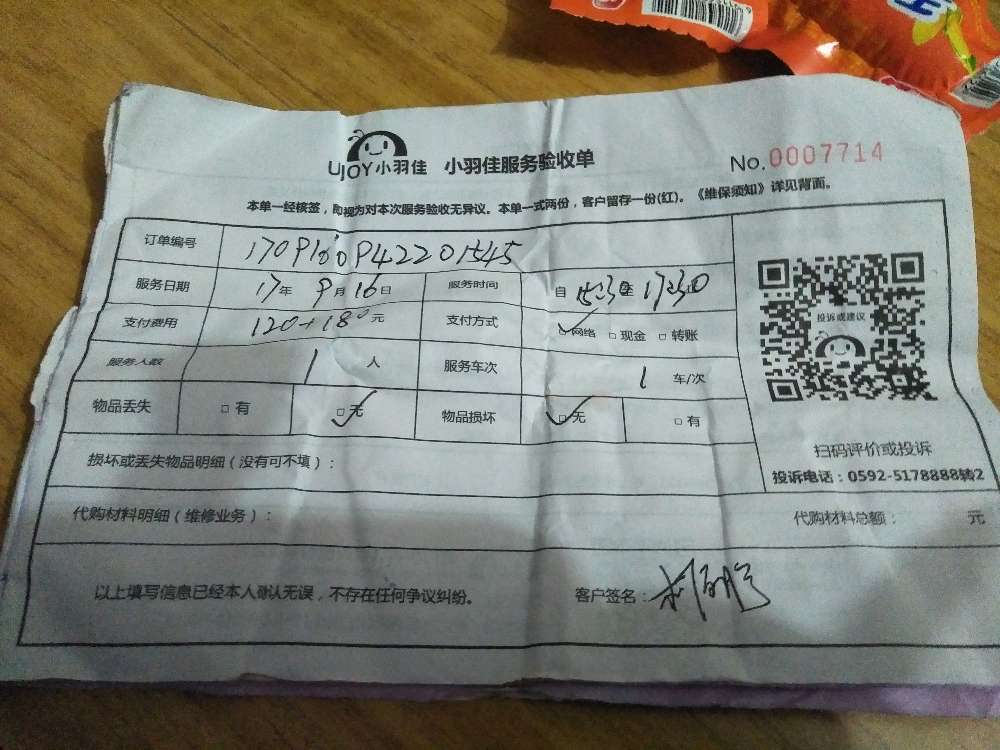 UJOY小羽佳 小羽佳服务验收单 No.0007714
本单一经核签，即视为对本次服务验收无异议。本单一式两份，客户留存一份(红)。《维保须知》详见背面。
订单编号 1709160942201545
服务日期 17年9月16日 服务时间 自15:30至17:30止
支付费用 120+180元 支付方式 ☑网络 □现金 □转账
服务人数 1人 服务车次 1车/次
物品丢失 □有 ☑无 物品损坏 ☑无 □有
投诉或建议
扫码评价或投诉
投诉电话：0592-5178888转2
损坏或丢失物品明细（没有可不填）：
代购材料明细（维修业务）： 代购材料总额： 元
以上填写信息已经本人确认无误，不存在任何争议纠纷。 客户签名：